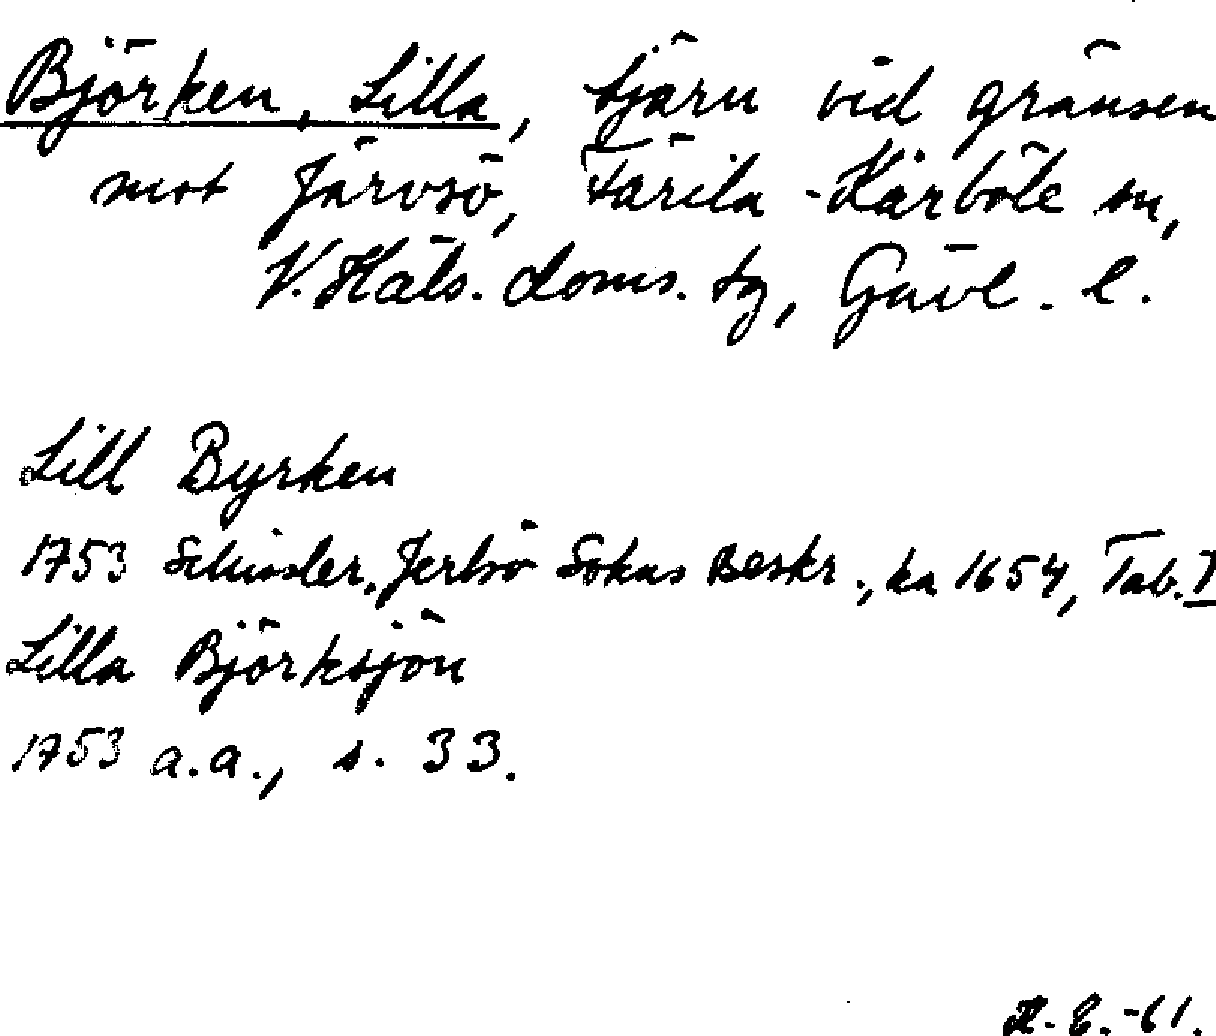 Björken, Lilla, tjärn vid gränsen
mot Järvsö, Färila-Kårböle sn,
V. Häls. doms. tg, Gävl. l.
Lill Byrken
1753 Schissler, Jerlsö Sokns Beskr., ka 1654, Tab. I
Lilla Björksjön
1753 a.a., s. 33.
H. E. -61.